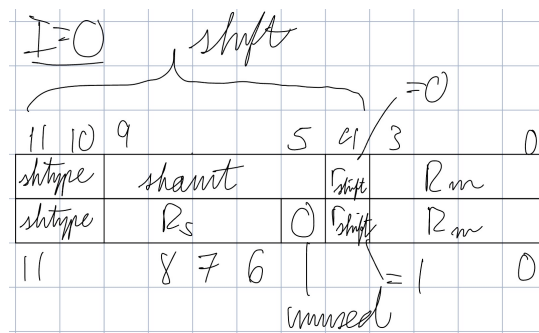 I=0 shift
=0
11 10 9 5 4 3 0
shtype shamt rshift Rm
shtype Rs 0 rshift Rm
11 8 7 6 =1 0
unused